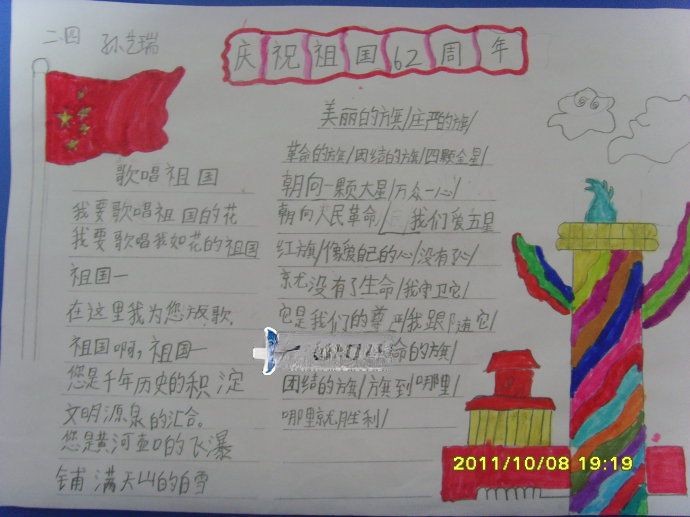 二.四 孙艺瑞
庆祝祖国62周年
歌唱祖国
我要歌唱祖国的花
我要歌唱我如花的祖国
祖国一
在这里我为您放歌.
祖国啊,祖国一
您是千年历史的积淀
文明源泉的汇合.
您是黄河壶口的飞瀑
铺满天山的白雪
美丽的旗/庄严的旗/
革命的旗/团结的旗/四颗金星/
朝向一颗大星/万众一心/
朝向人民革命/ 我们爱五星
红旗/像爱自己的心/没有了心/
就没有了生命/我守卫它/
它是我们的尊严/我跟随它/
命的旗/
团结的旗/旗到哪里/
哪里就胜利/
2011/10/08 19:19